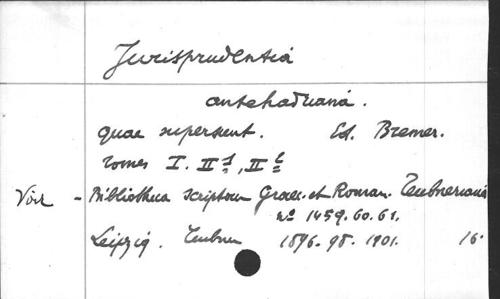 Jurisprudentia
antehadriana.
quae supersunt. Ed. Bremer.
tomes I. II 1, II 2
Voir - Bibliotheca scriptorum Graec. et Roman. Teubneriana
nº 1459. 60. 61.
Leipzig. Teubner 1896. 98. 1901. 16º